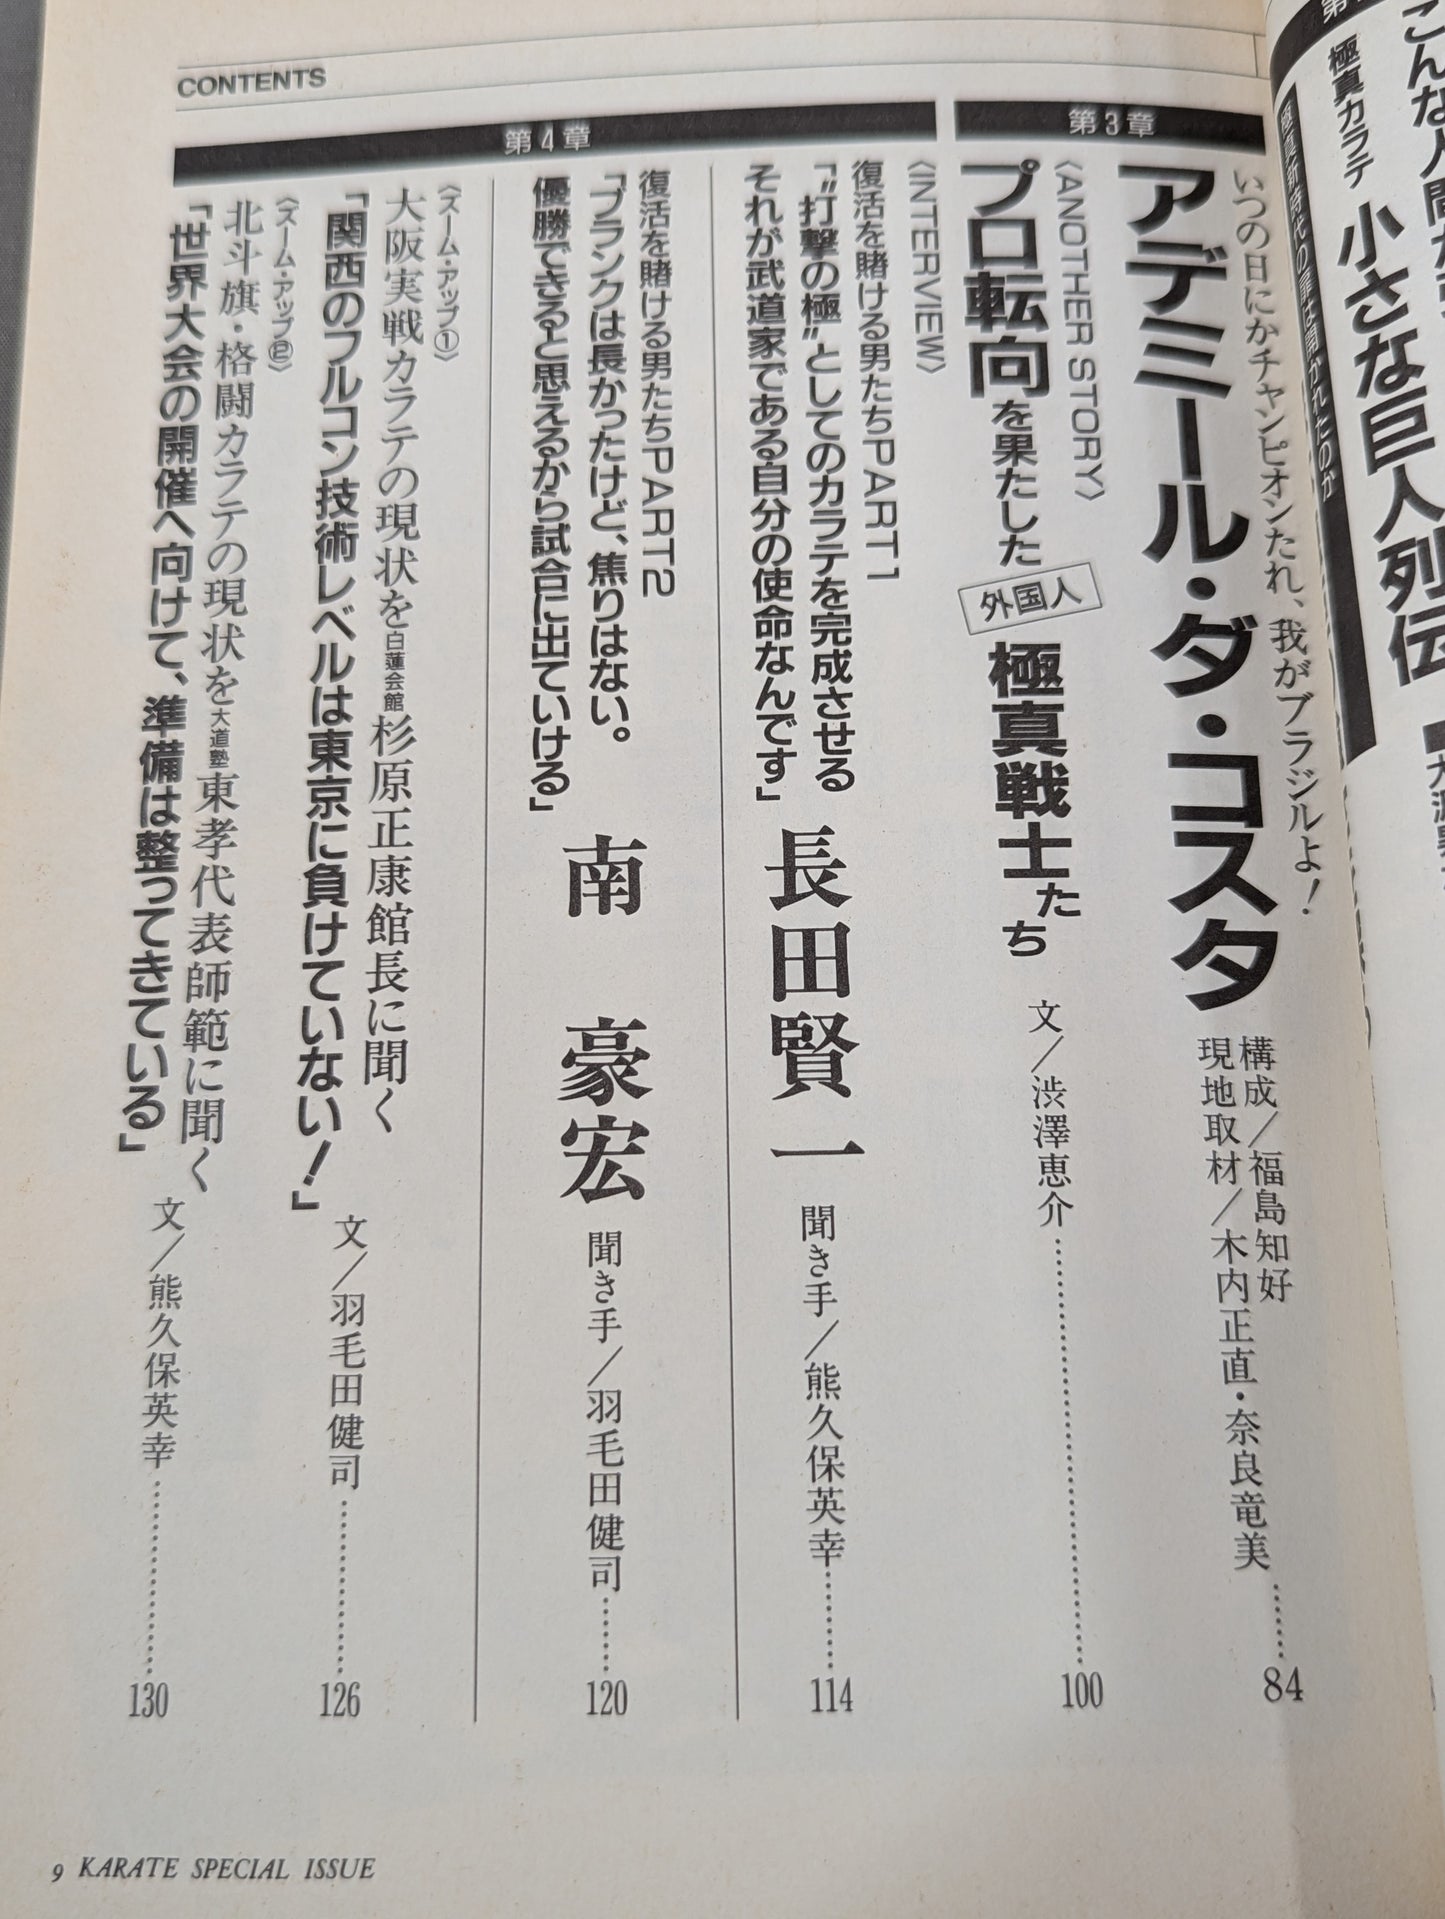 極真カラテ
小さな巨人列伝
CONTENTS
第3章
いつの日にかチャンピオンたれ、我がブラジルよ!
アデミール・ダ・コスタ
構成/福島知好
現地取材/木内正直・奈良竜美
84
〈ANOTHER STORY〉
プロ転向を果たした外国人極真戦士たち
文/渋澤恵介
100
第4章
〈INTERVIEW〉
復活を賭ける男たちPART1
「“打撃の極”としてのカラテを完成させる
それが武道家である自分の使命なんです」
長田賢一
聞き手/熊久保英幸
114
復活を賭ける男たちPART2
「ブランクは長かったけど、焦りはない。
優勝できると思えるから試合に出ていける」
南 豪宏
聞き手/羽毛田健司
120
〈ズーム・アップ①〉
大阪実戦カラテの現状を白蓮会館杉原正康館長に聞く
「関西のフルコン技術レベルは東京に負けていない!」
文/羽毛田健司
126
〈ズーム・アップ②〉
北斗旗・格闘カラテの現状を大道塾東孝代表師範に聞く
「世界大会の開催へ向けて、準備は整ってきている」
文/熊久保英幸
130
9 KARATE SPECIAL ISSUE